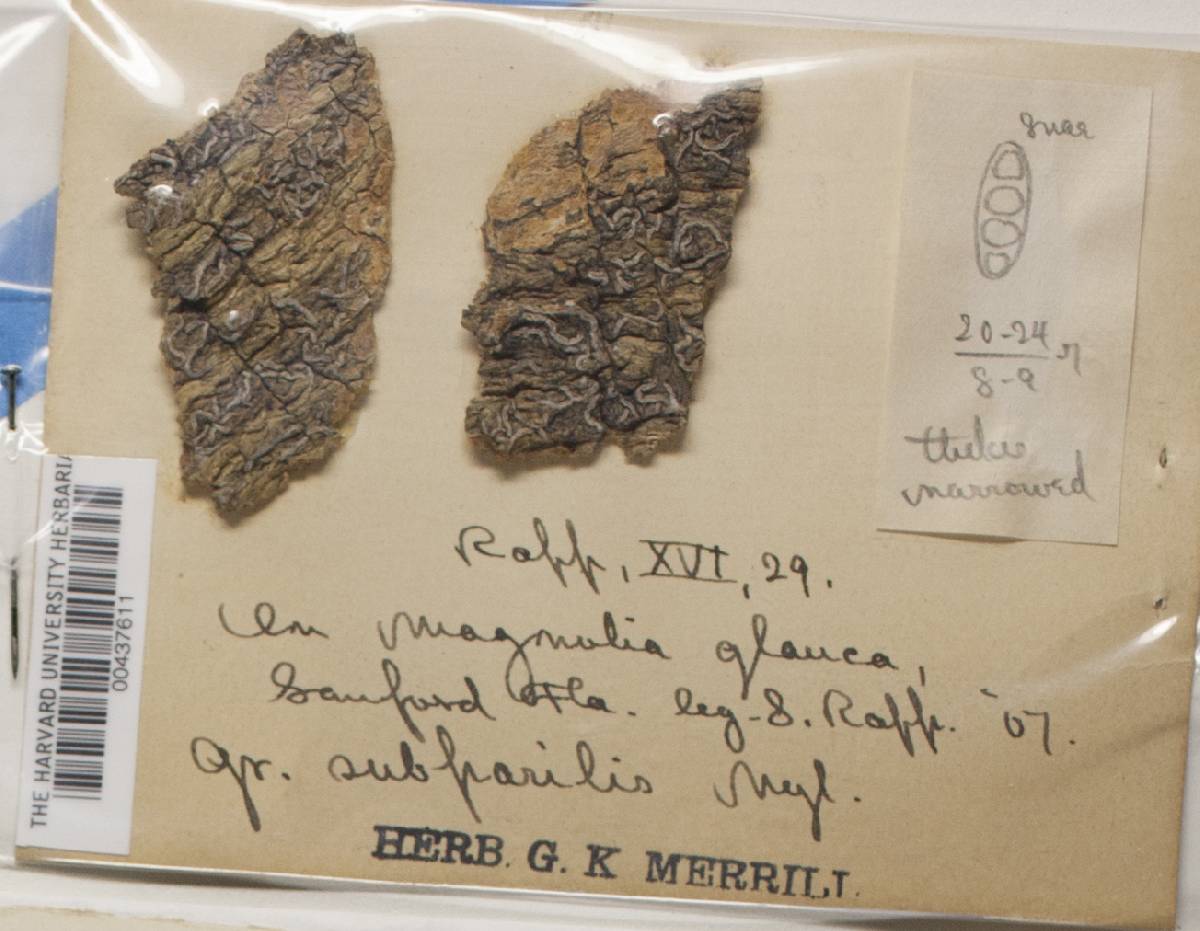 20-24
8-9
narrowed
Rapp, XVI, 29.
On Magnolia glauca,
Sanford Fla. leg. S. Rapp. '07.
Gr. subparilis Nyl.
HERB. G. K MERRILL
THE HARVARD UNIVERSITY HERBARIA
00437611